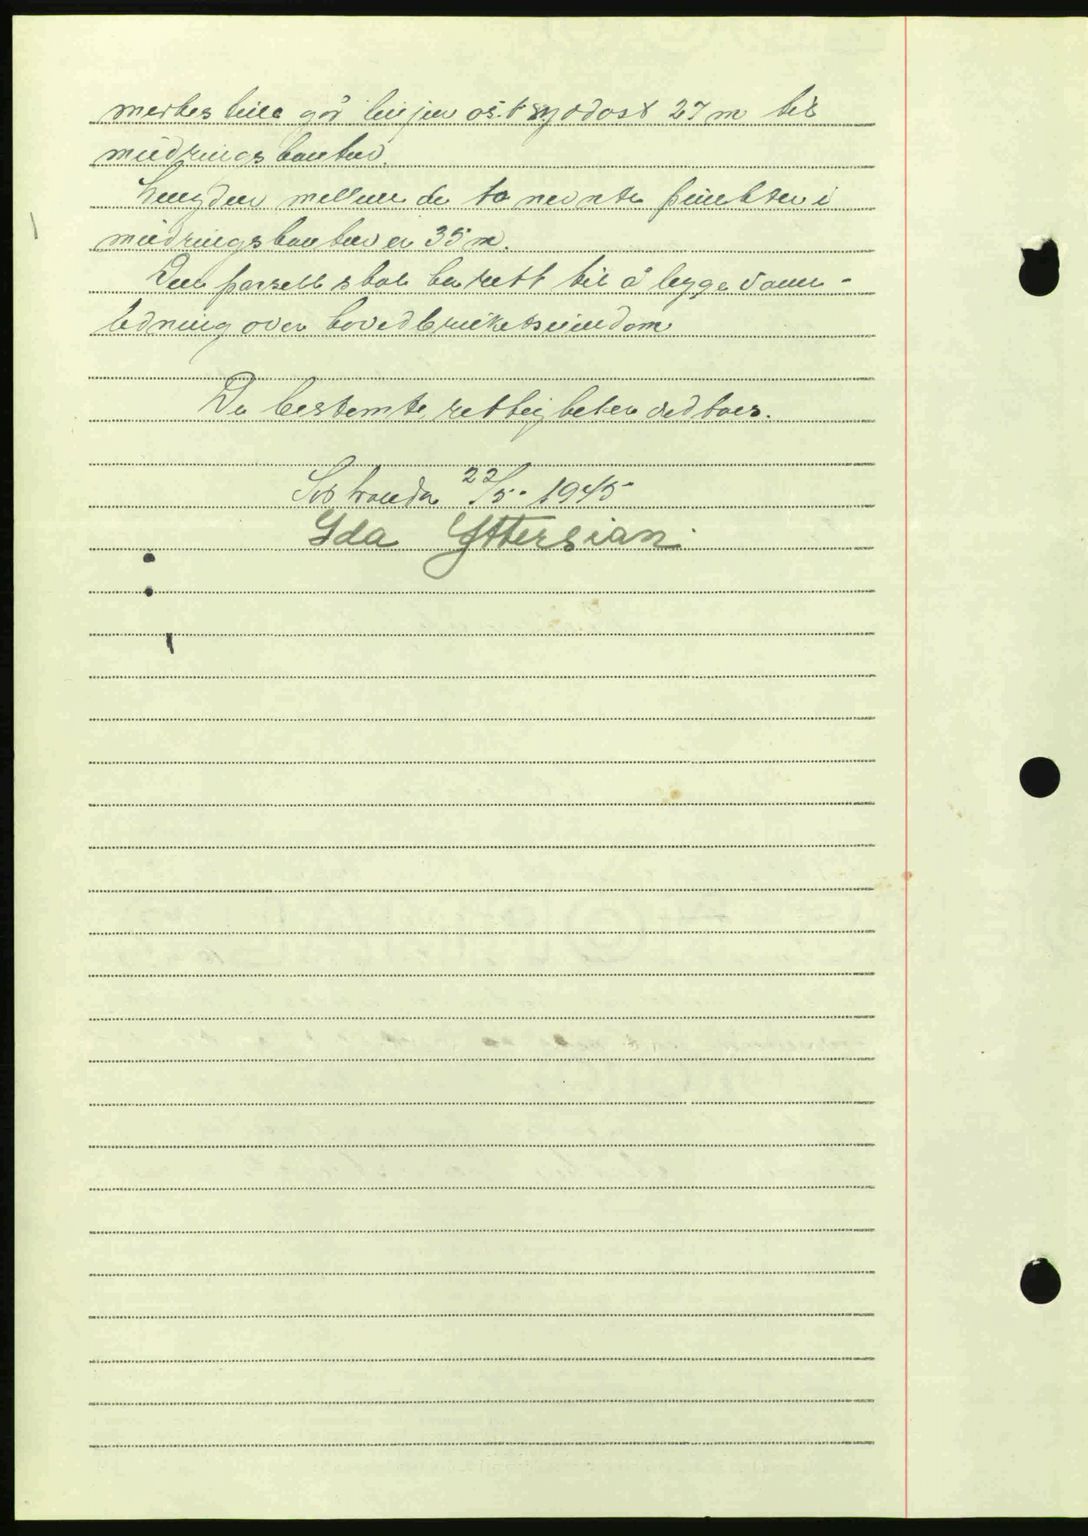 merkes teile går linjen ost sydost 27 m til
mudringskanten.
Lengden mellem de to nevnte punkter i
mudringskanten er 35 m.
Den parsell skal ha rett til å legge vann-
ledning over hovedbrukets eiendom
De bestemte rettigheter vedtaes.
22/5. 1945
Ida Yttersian.